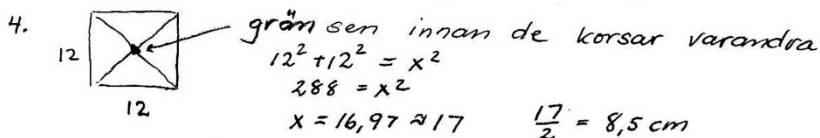 4.
gränsen innan de korsar varandra
12
12² + 12² = x²
288 = x²
12
x = 16,97 ≈ 17    17/2 = 8,5 cm